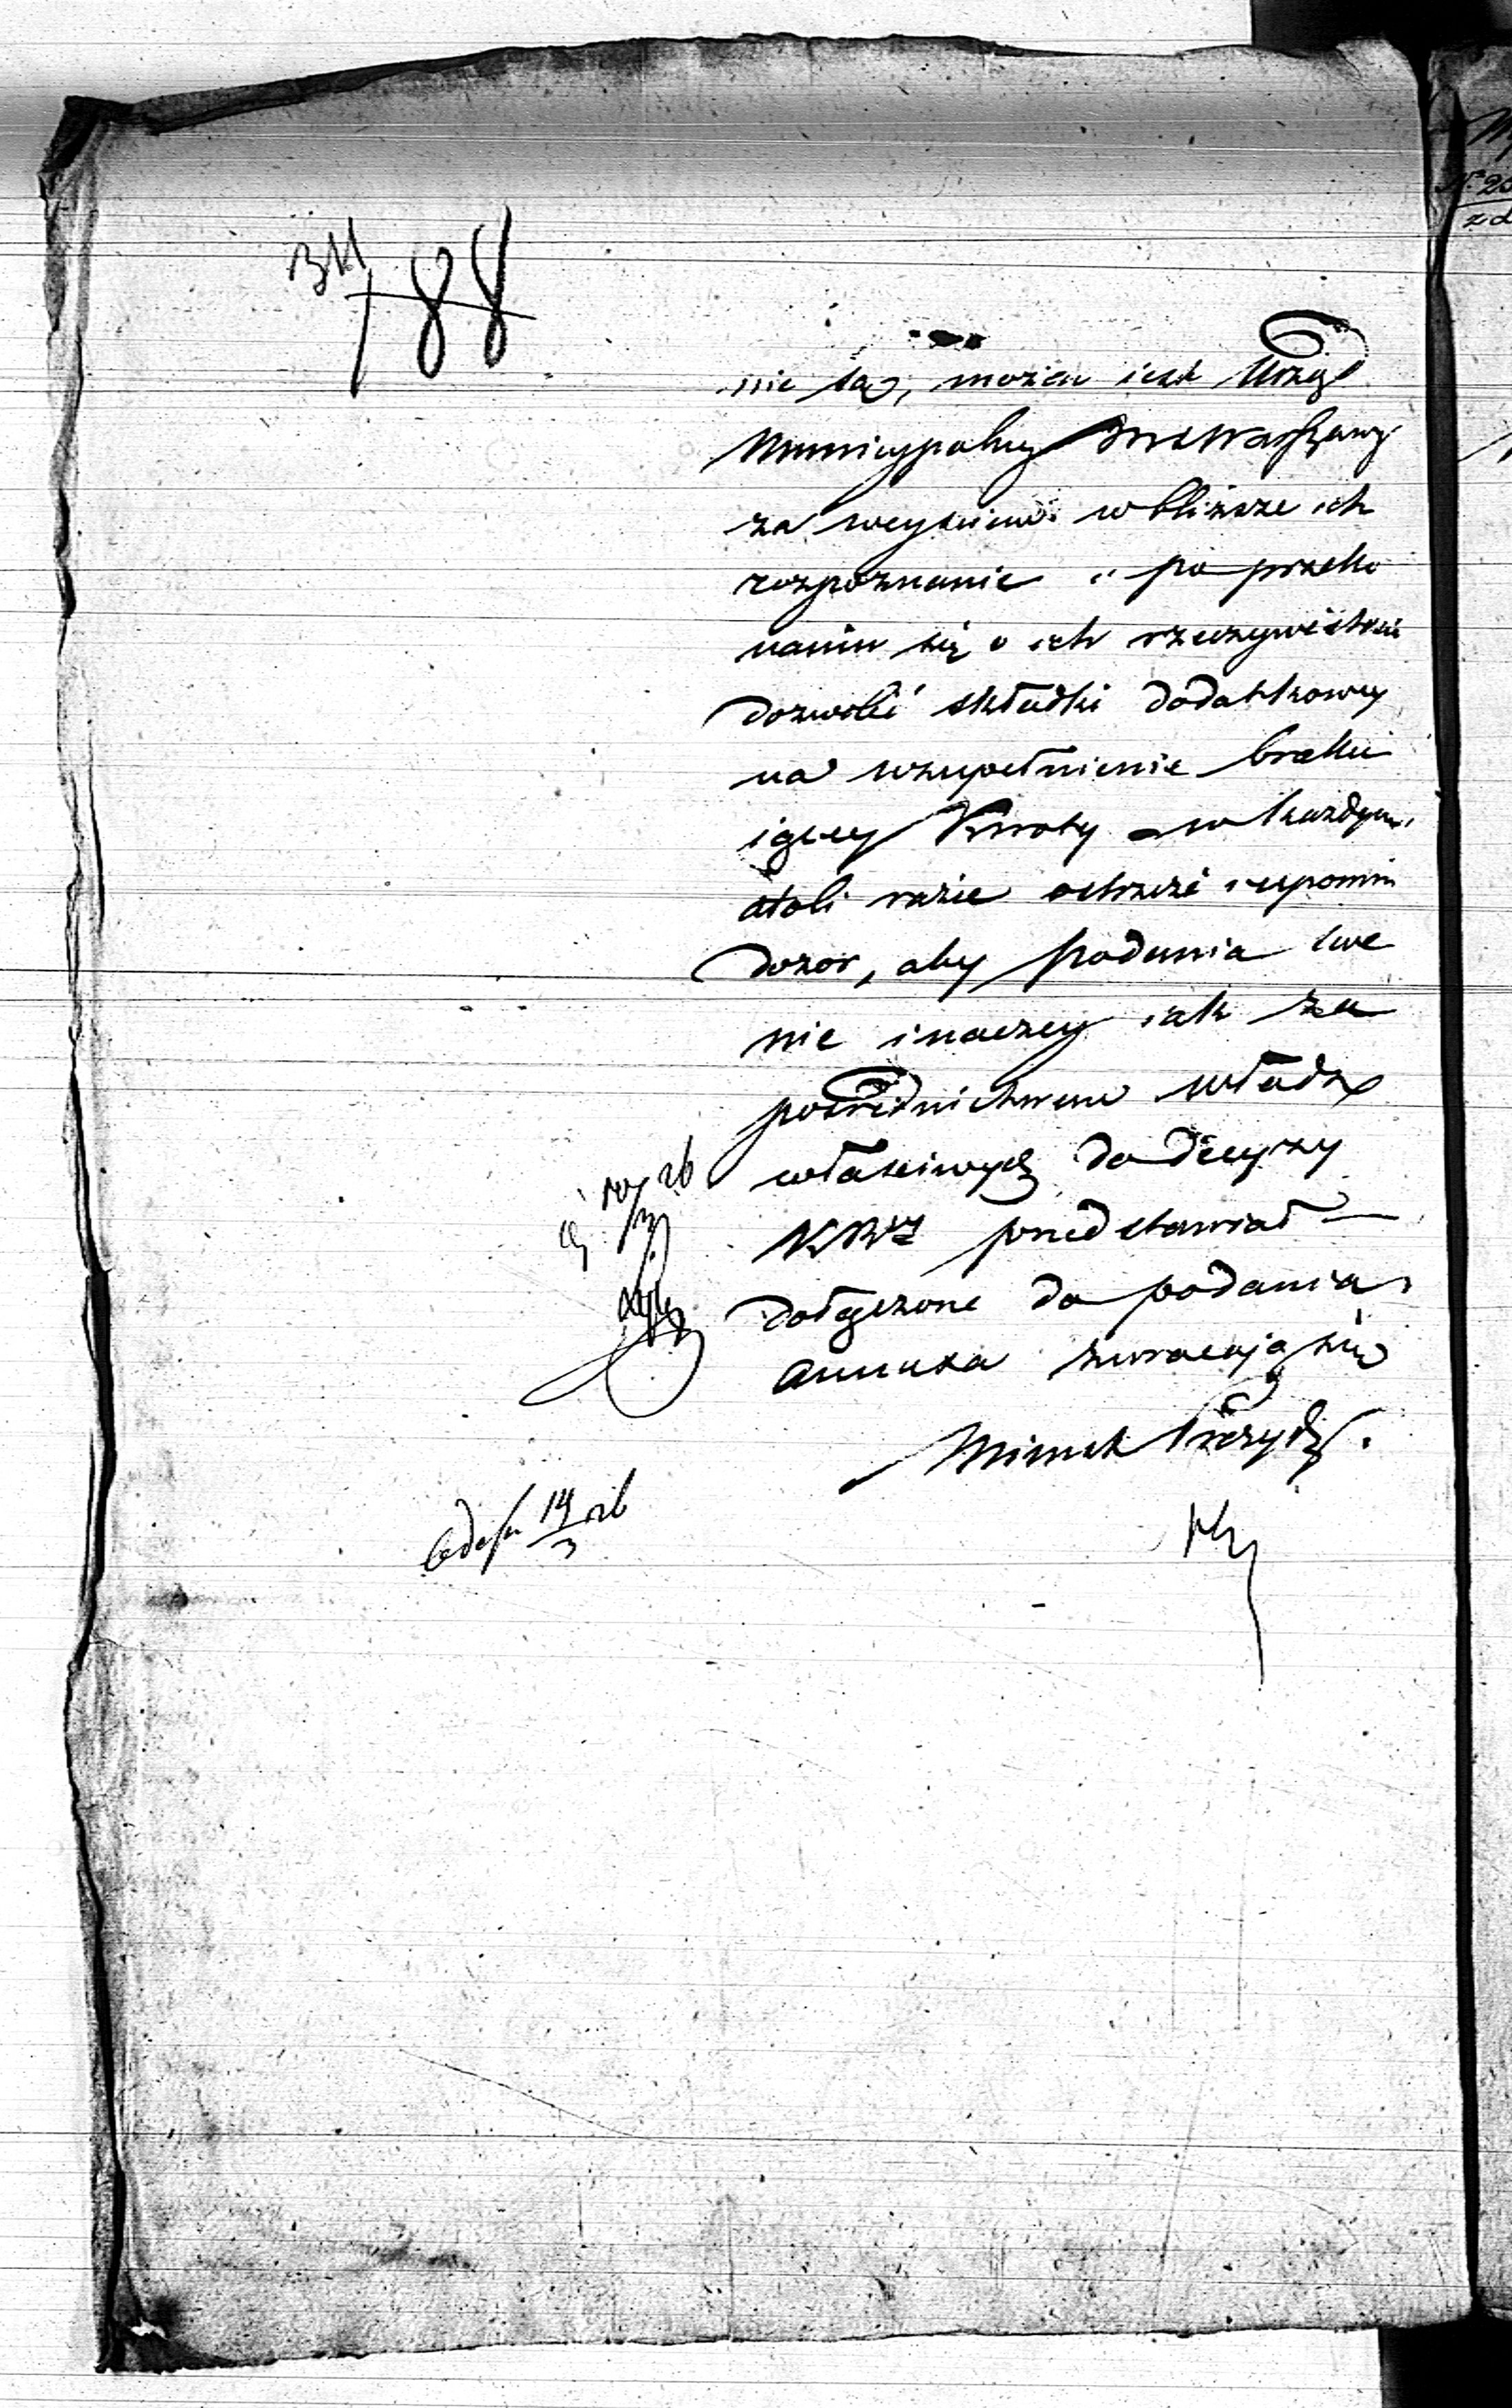 188
nie są, mocen iest Urząd
Municypalny M S Warszawy
za weyściem w bliższe ich
rozpoznanie i po przeko
naniu się o ich rzeczywistości
dozwolić składki dodatkowey
na uzupełnienie braku
iącey Kwoty w każdym
atoli razie ostrzeże i upomni
dozor, aby podania swe
nie inaczey iak za
pośrednictwem władz
właściwych do decyzyi
przedstawiał
dołączone do podania
annexa zwracają się
Minister Prezyd.
14/3 26